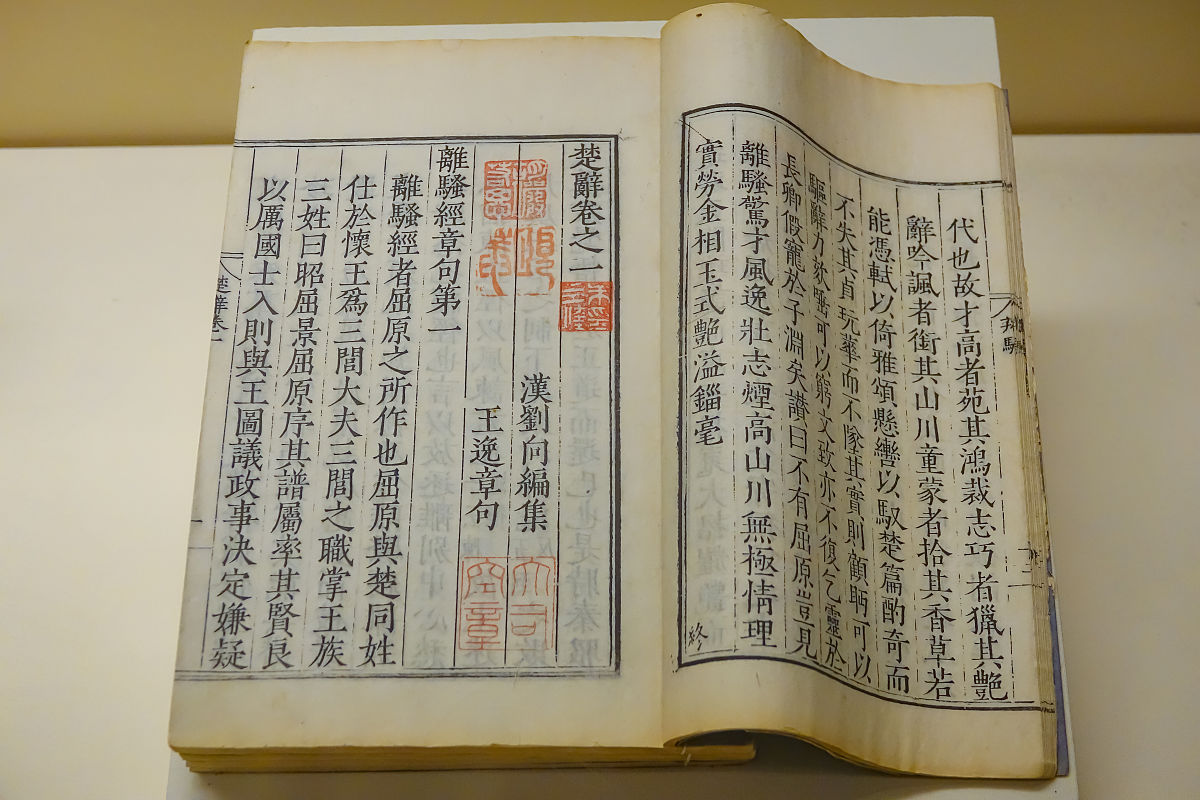 代也故才高者苑其鴻裁志巧者獵其艷
辭吟諷者銜其山川童蒙者拾其香草若
能憑軾以倚雅頌懸轡以馭楚篇酌奇而
不失其貞玩華而不墜其實則顧眄可以
驅辭力欬唾可以窮文致亦不復乞靈於
長卿假寵於子淵矣讃曰不有屈原豈見
離騷驚才風逸壯志煙高山川無極情理
實勞金相玉式艷溢錙毫
終
楚辭卷之一
漢劉向編集
王逸章句
大司
空章
離騷經章句第一
離騷經者屈原之所作也屈原與楚同姓
仕於懷王爲三閭大夫三閭之職掌王族
三姓曰昭屈景屈原序其譜屬率其賢良
以厲國士入則與王圖議政事決定嫌疑
楚辭卷一